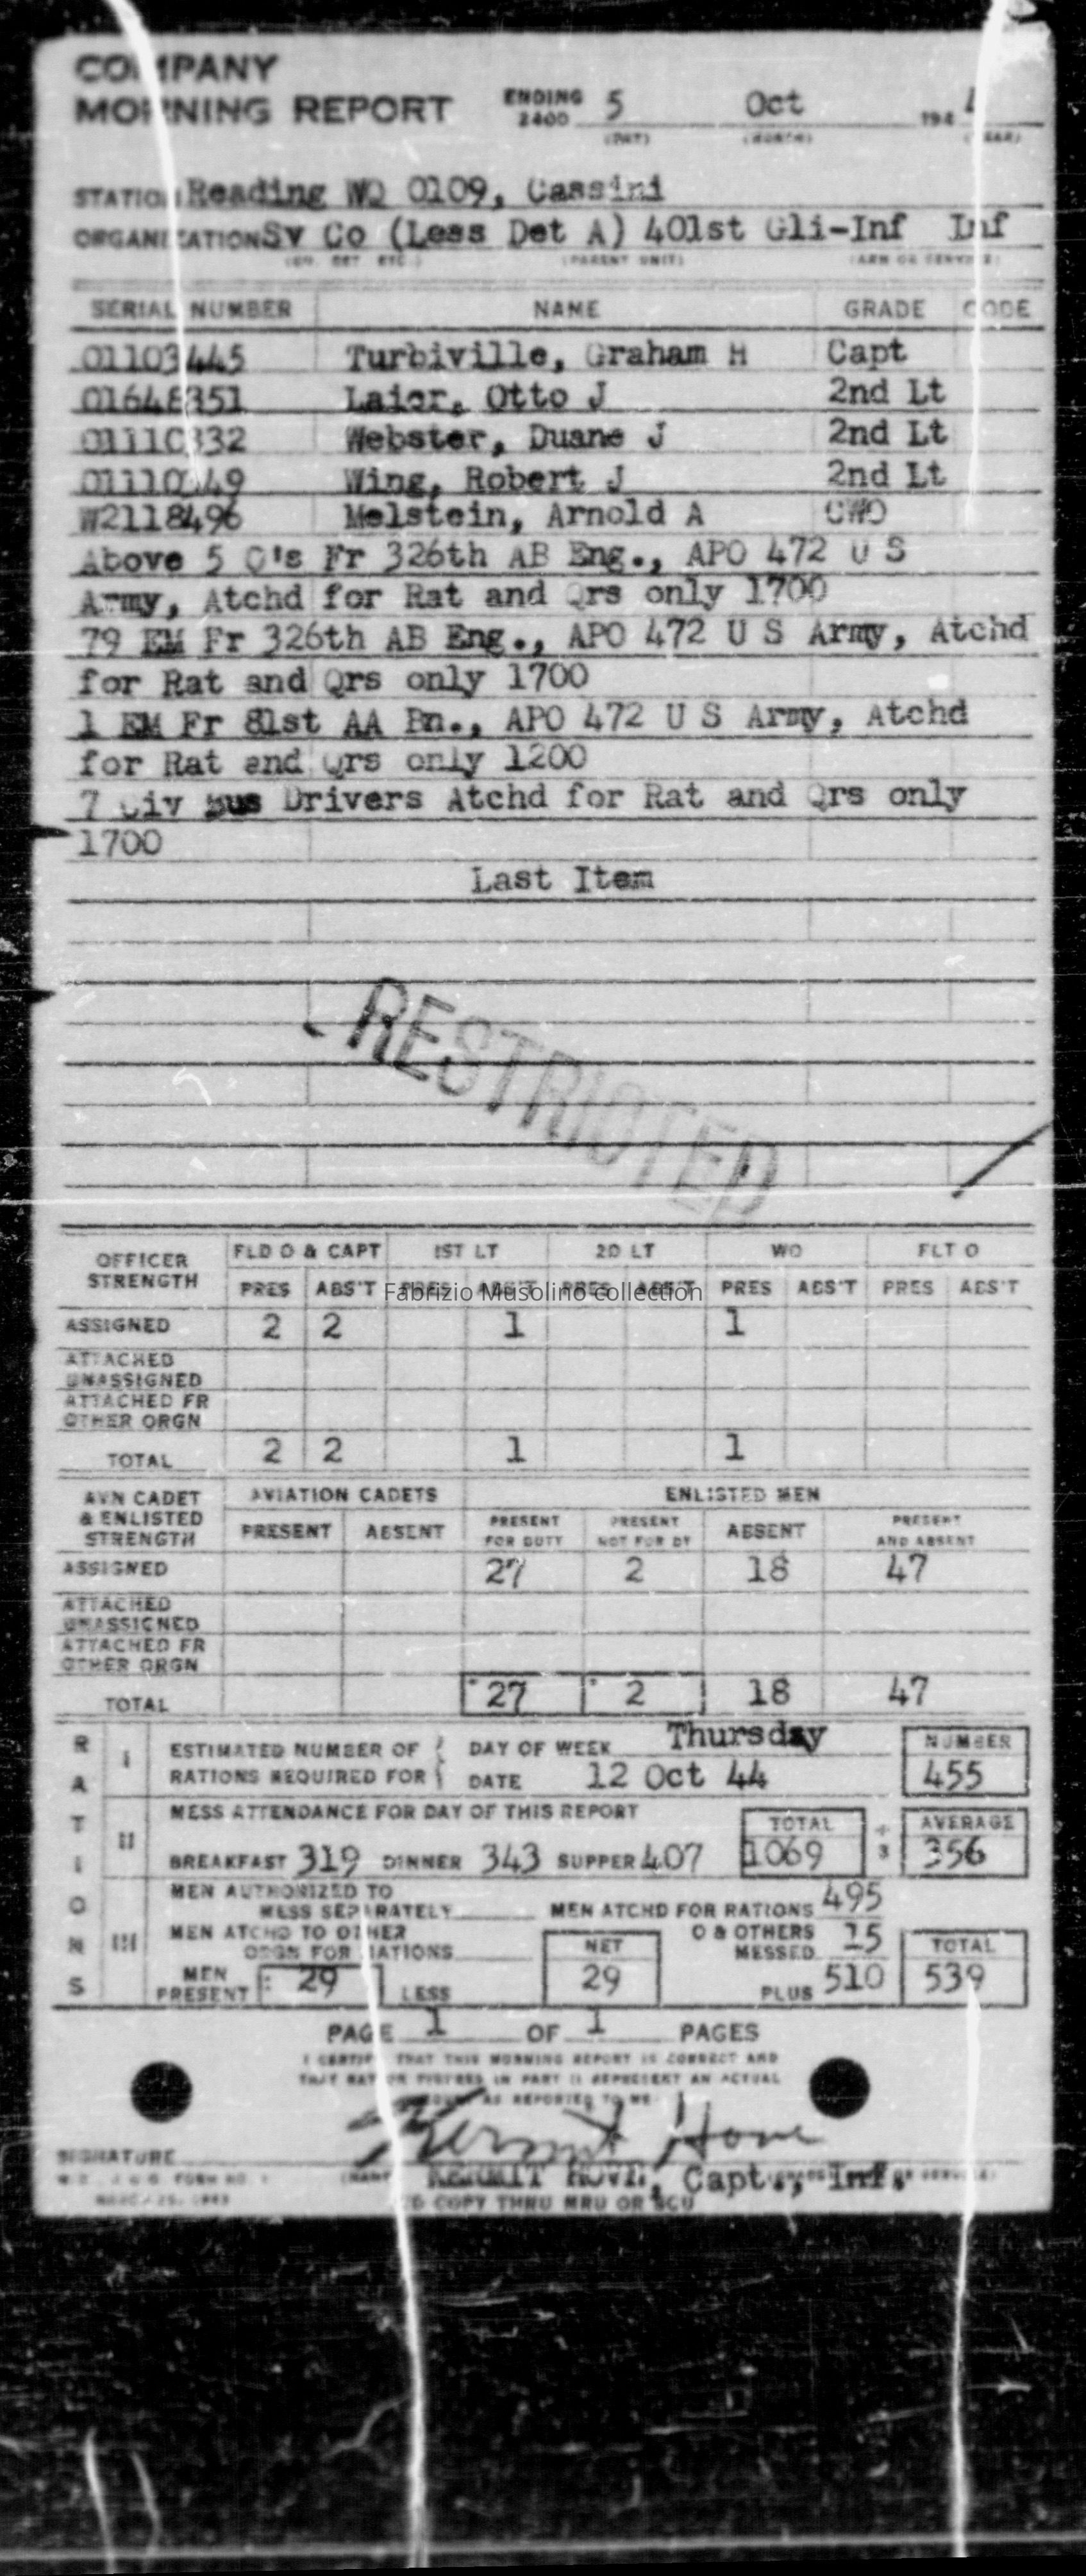 COMPANY
MORNING REPORT ENDING 2400 5 Oct 194
(DAY) (MONTH) (YEAR)
STATION Reading WQ 0109, Cassini
ORGANIZATION Sv Co (Less Det A) 401st Gli-Inf Inf
(PARENT UNIT) (ARM OR SERVICE)
SERIAL NUMBER NAME GRADE CODE
01103445 Turbiville, Graham H Capt
01648351 Laier, Otto J 2nd Lt
01110332 Webster, Duane J 2nd Lt
Wing, Robert J 2nd Lt
W2118496 Melstein, Arnold A CWO
Above 5 O's Fr 326th AB Eng., APO 472 U S
Army, Atchd for Rat and Qrs only 1700
79 EM Fr 326th AB Eng., APO 472 U S Army, Atchd
for Rat and Qrs only 1700
1 EM Fr 81st AA Bn., APO 472 U S Army, Atchd
for Rat and Qrs only 1200
7 Civ Bus Drivers Atchd for Rat and Qrs only
1700
Last Item
RESTRICTED
OFFICER STRENGTH FLD O & CAPT 1ST LT 2D LT WO FLT O
PRES ABS'T PRES ABS'T PRES ABS'T PRES ABS'T PRES ABS'T
Fabrizio Musolino collection
ASSIGNED 2 2 1 1
ATTACHED UNASSIGNED
ATTACHED FR OTHER ORGN
TOTAL 2 2 1 1
AVN CADET & ENLISTED STRENGTH AVIATION CADETS ENLISTED MEN
PRESENT ABSENT PRESENT FOR DUTY PRESENT NOT FOR DY ABSENT PRESENT AND ABSENT
ASSIGNED 27 2 18 47
ATTACHED UNASSIGNED
ATTACHED FR OTHER ORGN
TOTAL 27 2 18 47
RATIONS
I ESTIMATED NUMBER OF DAY OF WEEK Thursday NUMBER
RATIONS REQUIRED FOR DATE 12 Oct 44 455
II MESS ATTENDANCE FOR DAY OF THIS REPORT TOTAL ÷ 3 AVERAGE
BREAKFAST 319 DINNER 343 SUPPER 407 1069 356
III MEN AUTHORIZED TO MESS SEPARATELY MEN ATCHD FOR RATIONS 495
MEN ATCHD TO OTHER ORGN FOR RATIONS NET O & OTHERS MESSED 15 TOTAL
MEN PRESENT 29 LESS 29 PLUS 510 539
PAGE 1 OF 1 PAGES
I CERTIFY THAT THIS MORNING REPORT IS CORRECT AND
THAT RATION FIGURES IN PART II REPRESENT AN ACTUAL
COUNT AS REPORTED TO ME
SIGNATURE Kermit Hove
KERMIT HOVE, Capt., Inf.
COPY THRU MRU OR SCU